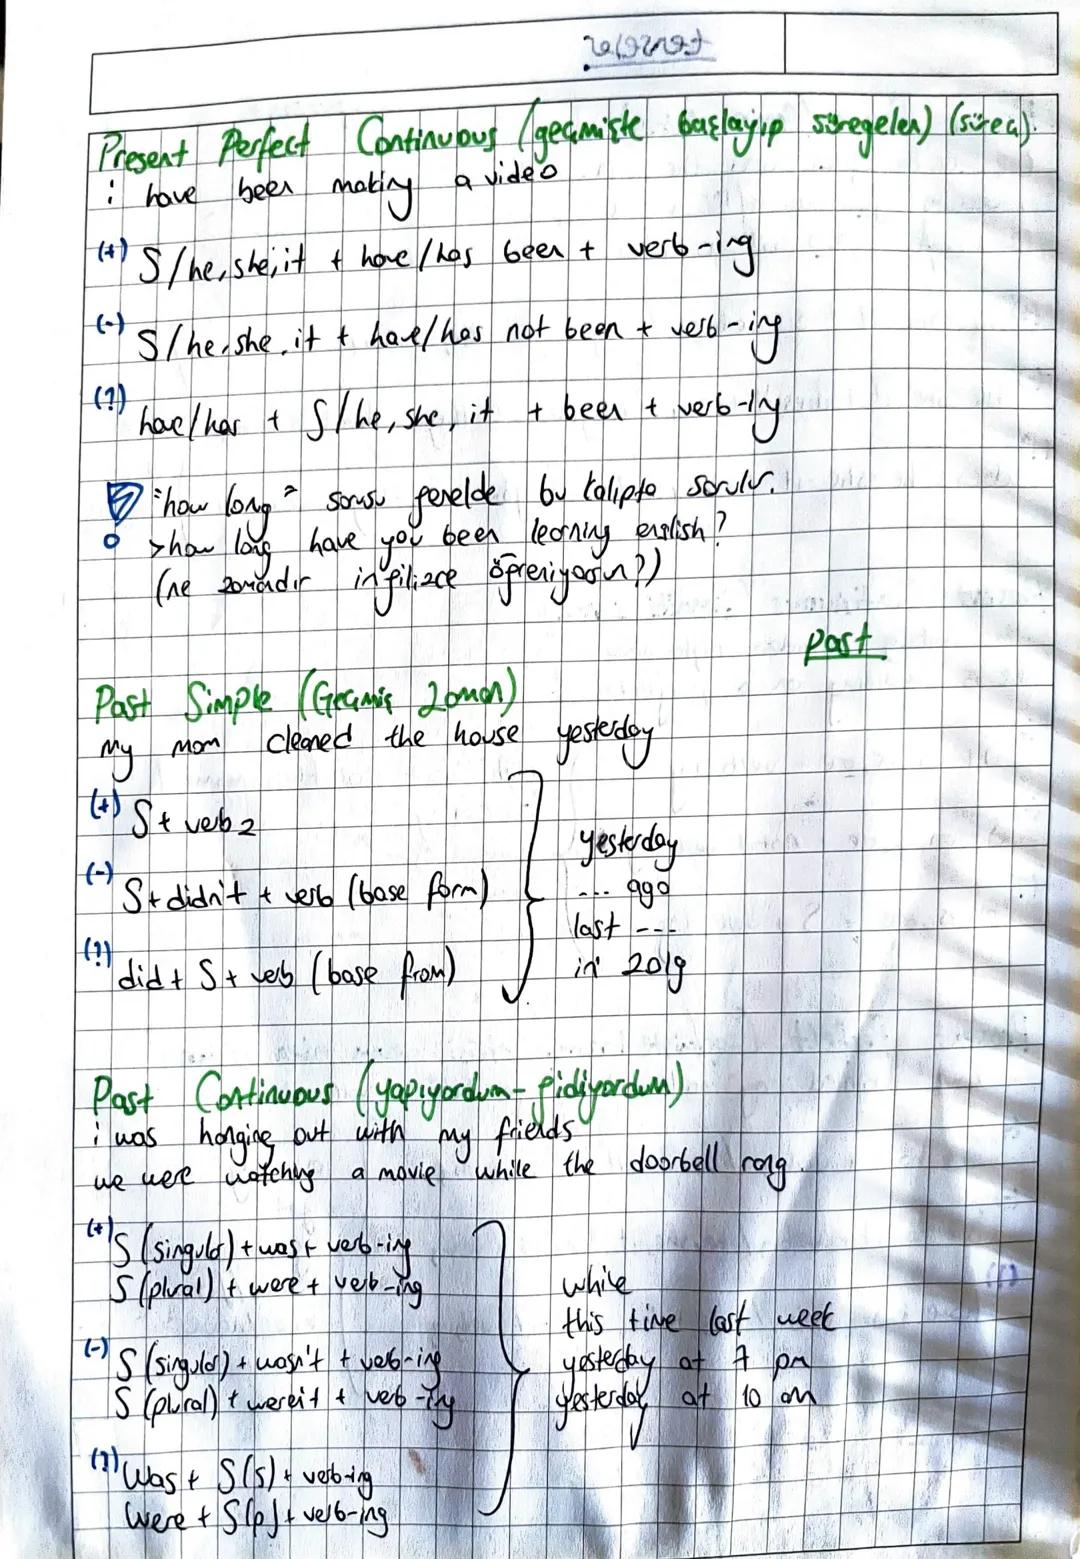 Present Perfect Continuous (geçmişte başlayıp süregelen) (süreç).
i have been making a video
(+) S/he, she, it + have/has been + verb-ing
(-) S/he, she, it + have/has not been + verb-ing
(?) have/has + S/he, she, it + been + verb-ing
"how long" sorusu genelde bu kalıpta sorulur.
>how long have you been learning english?
(ne zamandır ingilizce öğreniyorsun?)
Past
Past Simple (Geçmiş Zaman)
My mom cleaned the house yesterday
(+) S + verb 2
(-) S + didn't + verb (base form)
(?) did + S + verb (base from)
yesterday
... ago
last ---
in 2019
Past Continuous (yapıyordum - gidiyordum)
i was hanging out with my friends
we were watching a movie while the doorbell rang
(+) S (singular) + was + verb-ing
S (plural) + were + verb-ing
(-) S (singular) + wasn't + verb-ing
S (plural) + weren't + verb-ing
(?) Was + S(s) + verb-ing
Were + S(p) + verb-ing
while
this time last week
yesterday at 7 pm
yesterday at 10 am